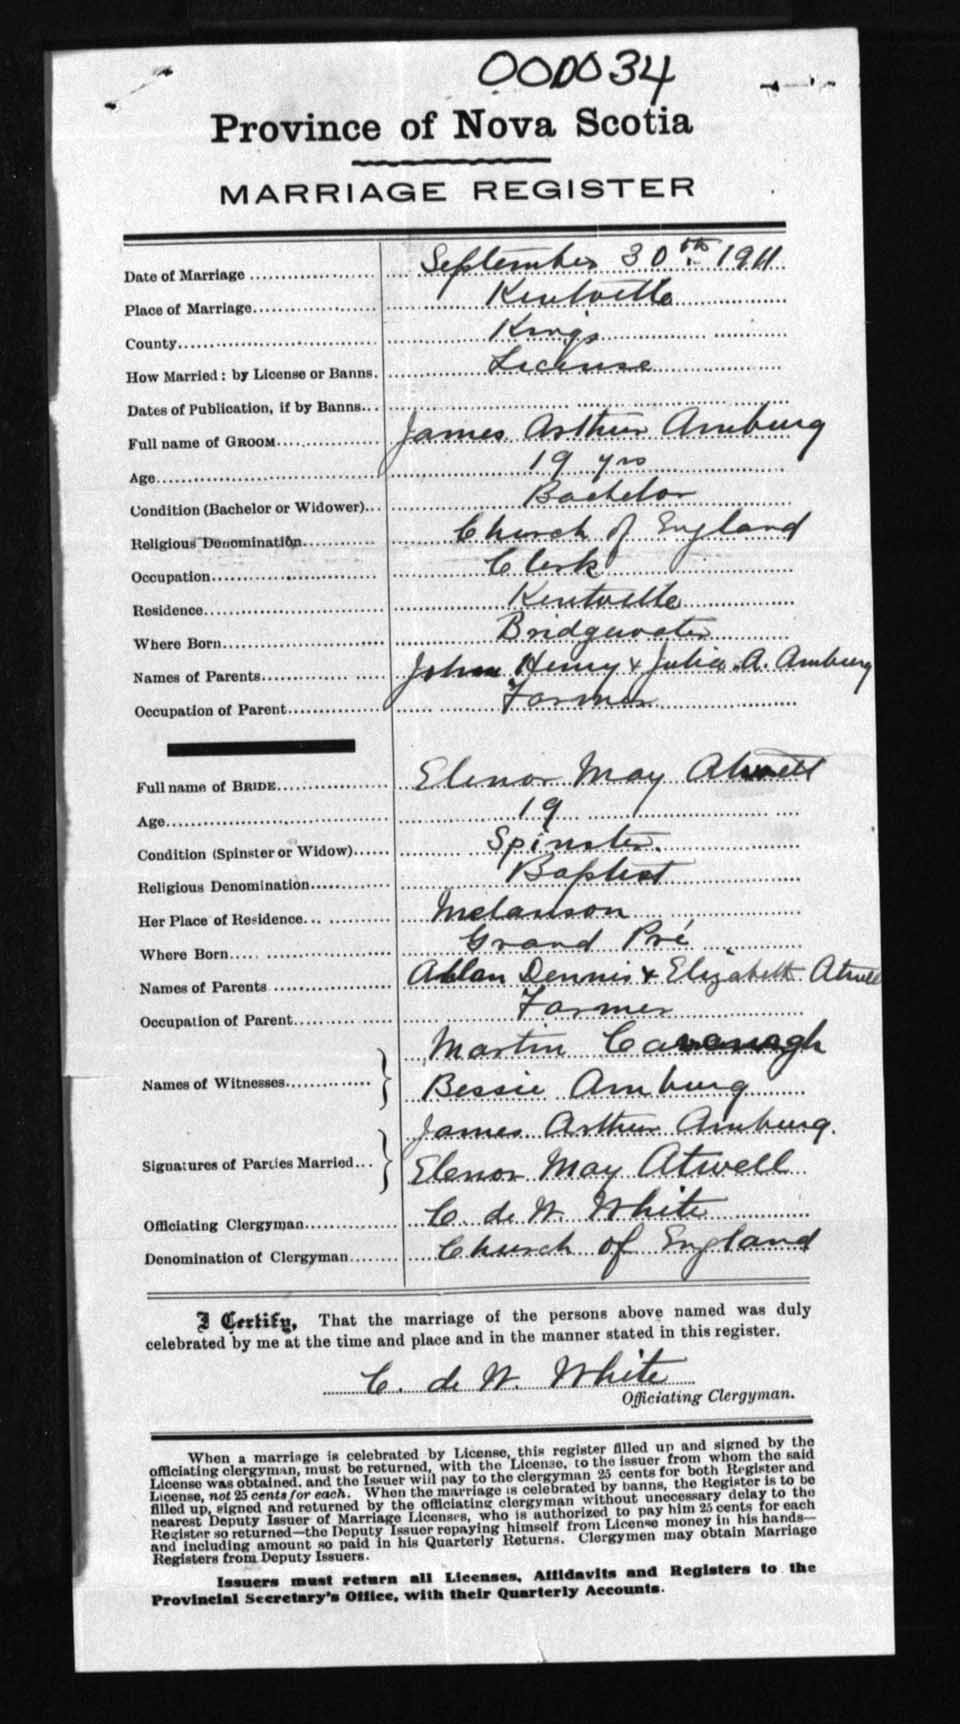 000034
Province of Nova Scotia
MARRIAGE REGISTER
Date of Marriage September 30th 1911
Place of Marriage Kentville
County Kings
How Married: by License or Banns. License
Dates of Publication, if by Banns
Full name of GROOM James Arthur Amburg
Age 19 yrs
Condition (Bachelor or Widower) Bachelor
Religious Denomination Church of England
Occupation Clerk
Residence Kentville
Where Born Bridgewater
Names of Parents John Henry & Julia A. Amburg
Occupation of Parent Farmer
Full name of BRIDE Elenor May Atwell
Age 19
Condition (Spinster or Widow) Spinster.
Religious Denomination Baptist
Her Place of Residence Melanson
Where Born Grand Pré
Names of Parents Allan Dennis & Elizabeth Atwell
Occupation of Parent Farmer
Martin Cavanagh
Names of Witnesses
Bessie Amburg
James Arthur Amburg.
Signatures of Parties Married
Elenor May Atwell
Officiating Clergyman C. de W. White
Denomination of Clergyman Church of England
I Certify, That the marriage of the persons above named was duly
celebrated by me at the time and place and in the manner stated in this register.
C. de W. White
Officiating Clergyman.
When a marriage is celebrated by License, this register filled up and signed by the
officiating clergyman, must be returned, with the License, to the issuer from whom the said
License was obtained, and the Issuer will pay to the clergyman 25 cents for both Register and
License, not 25 cents for each. When the marriage is celebrated by banns, the Register is to be
filled up, signed and returned by the officiating clergyman without unnecessary delay to the
nearest Deputy Issuer of Marriage Licenses, who is authorized to pay him 25 cents for each
Register so returned—the Deputy Issuer repaying himself from License money in his hands—
and including amount so paid in his Quarterly Returns. Clergymen may obtain Marriage
Registers from Deputy Issuers.
Issuers must return all Licenses, Affidavits and Registers to the
Provincial Secretary's Office, with their Quarterly Accounts.